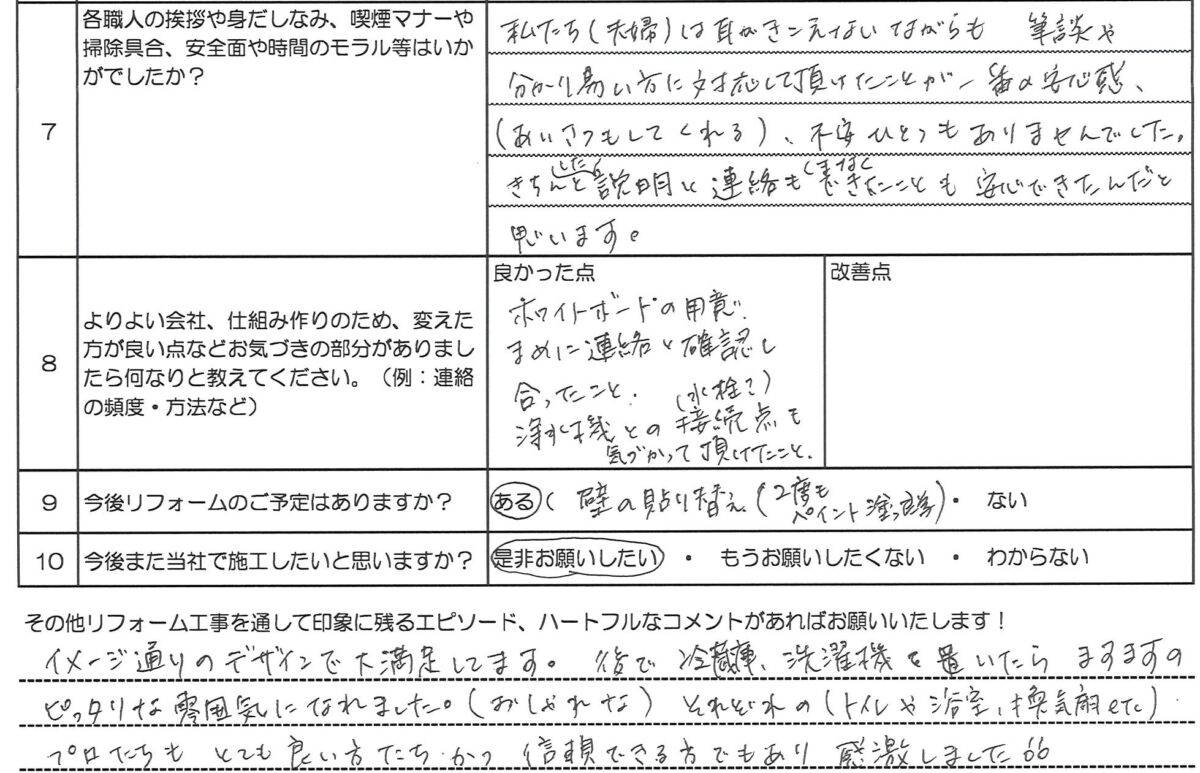 各職人の挨拶や身だしなみ、喫煙マナーや
掃除具合、安全面や時間のモラル等はいか
がでしたか？
7
私たち(夫婦)は耳がきこえないながらも 筆談や
分かり易い方に対応して頂けたことが一番の安心感、
(あいさつもしてくれる)、不安ひとつもありませんでした。
きちんとした説明と連絡もこまなくできたことも安心できたんだと
思います。
8
よりよい会社、仕組み作りのため、変えた
方が良い点などお気づきの部分がありまし
たら何なりと教えてください。（例：連絡
の頻度・方法など）
良かった点
ホワイトボードの用意、
まめに連絡と確認し
合ったこと、(水栓？)
浄水機との接続点も
気づかって頂けたこと、
改善点
9
今後リフォームのご予定はありますか？
ある ( 壁の貼り替え (2度も
ペイント塗った為) ・ ない
10
今後また当社で施工したいと思いますか？
是非お願いしたい ・ もうお願いしたくない ・ わからない
その他リフォーム工事を通して印象に残るエピソード、ハートフルなコメントがあればお願いいたします！
イメージ通りのデザインで大満足してます。後で冷蔵庫、洗濯機を置いたらますますの
ピッタリな雰囲気になれました。(おしゃれな) それぞれの(トイレや浴室、換気扇etc)
プロたちも とても良い方たちかつ信頼できる方でもあり 感激しました